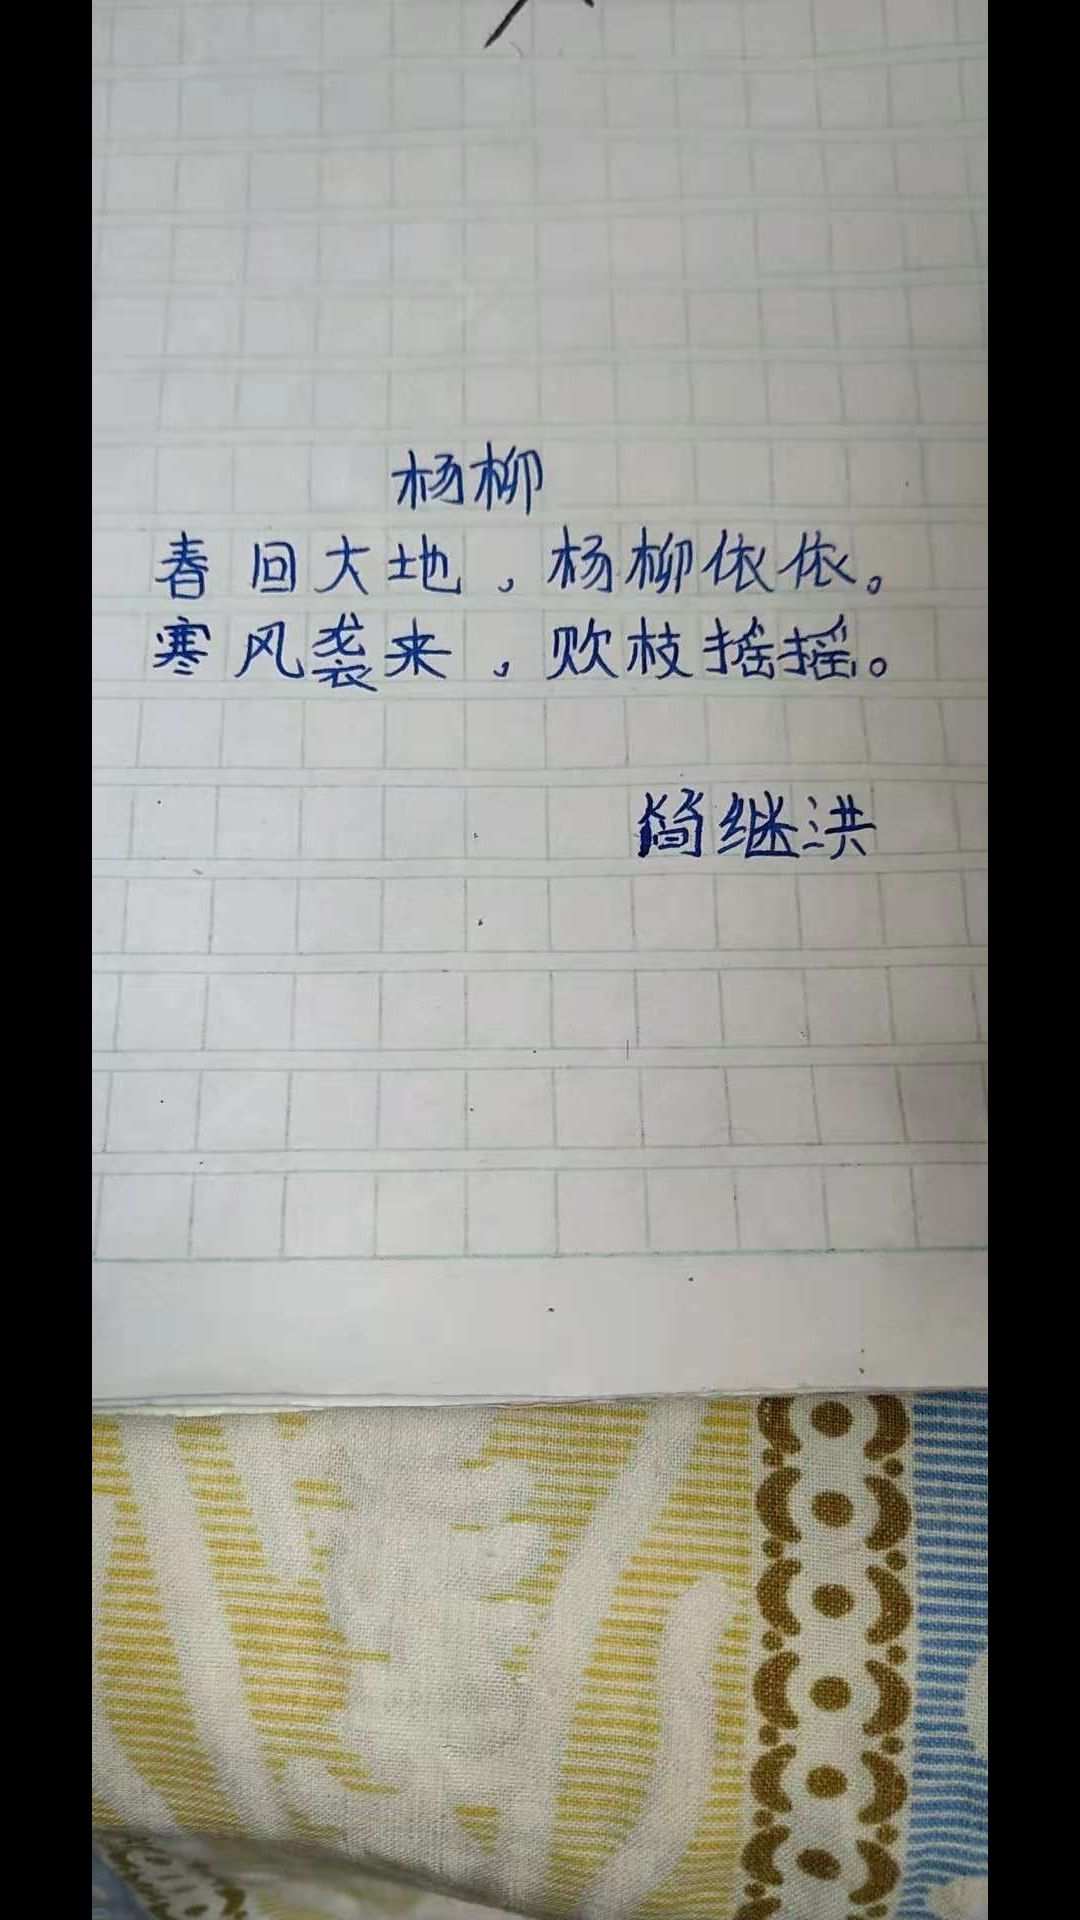 杨柳
春回大地，杨柳依依。
寒风袭来，败枝摇摇。
简继洪